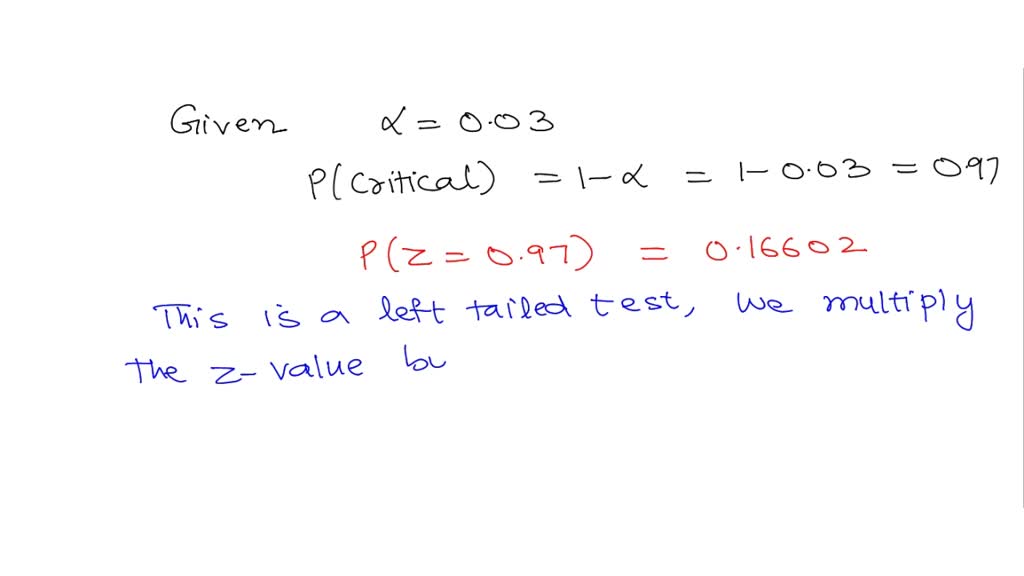 Given α = 0.03
P(Critical) = 1-α = 1-0.03 = 0.97
P(Z = 0.97) = 0.16602
This is a left tailed test, we multiply
the z-value bu